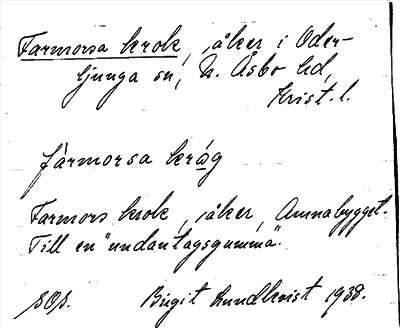 Farmorsa krok, åker i Oder-
ljunga sn, N. Åsbo hd,
Krist. l.
fàrmorsa kråg
Farmors krok, åker, Annabygget.
Till en "undantagsgumma".
Birgit Lundkvist 1938.